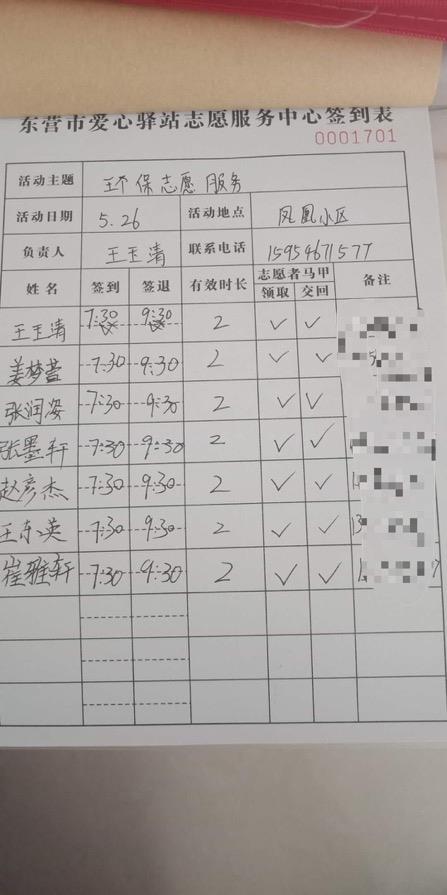 东营市爱心驿站志愿服务中心签到表
0001701
活动主题 环保志愿服务
活动日期 5.26 活动地点 凤凰小区
负责人 王玉清 联系电话 15954671577
姓名 签到 签退 有效时长 志愿者马甲 备注
领取 交回
王玉清 7:30 9:30 2 ✓ ✓
姜梦萱 7:30 9:30 2 ✓ ✓
张润姿 7:30 9:30 2 ✓ ✓
张墨轩 7:30 9:30 2 ✓ ✓
赵彦杰 7:30 9:30 2 ✓ ✓
王东英 7:30 9:30 2 ✓ ✓
崔雅轩 7:30 9:30 2 ✓ ✓